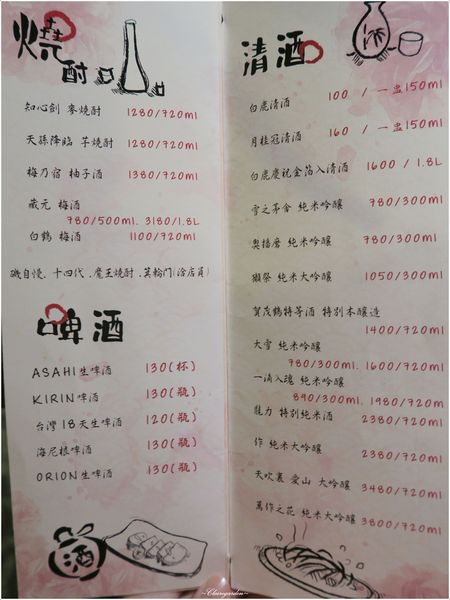 燒酎
知心劍 麥燒酎 1280/720ml
天孫降臨 芋燒酎 1280/720ml
梅乃宿 柚子酒 1380/720ml
藏元 梅酒
780/500ml. 3180/1.8L
白鶴 梅酒 1100/720ml
磯自慢. 十四代. 魔王燒酎. 箕輪門(洽店員)
啤酒
ASAHI生啤酒 130(杯)
KIRIN啤酒 130(瓶)
台灣18天生啤酒 120(瓶)
海尼根啤酒 130(瓶)
ORION生啤酒 130(瓶)
酒
清酒
白鹿清酒 100 / 一盅150ml
月桂冠清酒 160 / 一盅150ml
白鹿慶祝金箔入清酒 1600 / 1.8L
雪之茅舍 純米吟釀 780/300ml
奧播磨 純米吟釀 780/300ml
獺祭 純米大吟釀 1050/300ml
賀茂鶴特等酒 特別本釀造
1400/720ml
大雪 純米吟釀
780/300ml. 1600/720ml
一滴入魂 純米吟釀
890/300ml. 1980/720m
龍力 特別純米酒 2380/720ml
作 純米大吟釀 2380/720ml
天吹裏 愛山 大吟釀 3480/720ml
萬作之花 純米大吟釀 3800/720ml
~Charegarden~